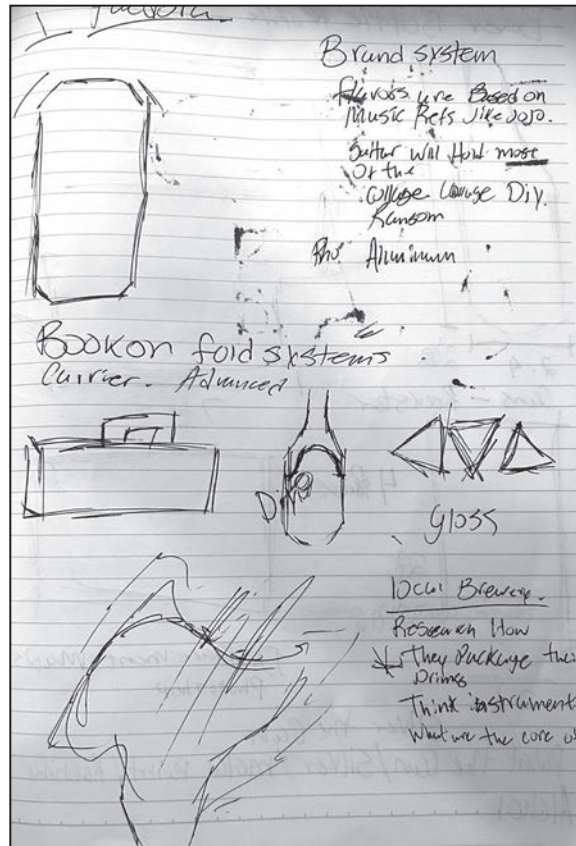 Brand system
Flavors are Based on
Music Refs like JoJo.
Guitar will Hold most
Of the
Collage DIY.
Ransom
Aluminum
Book on fold systems
Carrier. Advanced
Gloss
local Brewery.
Research How
They Package their
Drinks
Think instrument
What are the core of